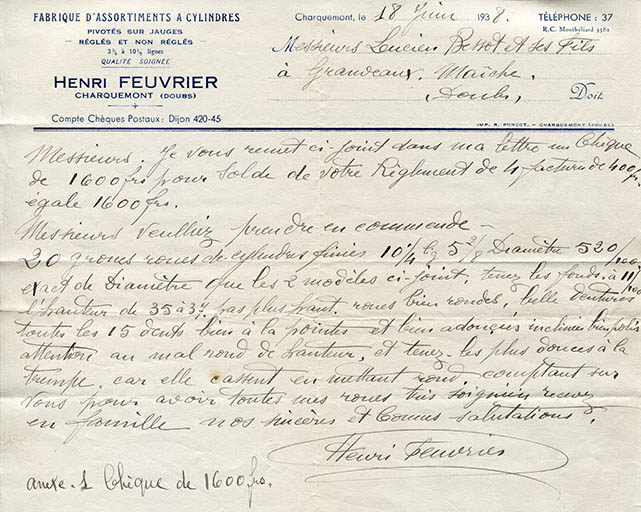 FABRIQUE D'ASSORTIMENTS A CYLINDRES
PIVOTÉS SUR JAUGES
RÉGLÉS ET NON RÉGLÉS
3¾ à 10½ lignes
QUALITE SOIGNÉE
HENRI FEUVRIER
CHARQUEMONT (DOUBS)
Compte Chèques Postaux : Dijon 420-45
Charquemont, le 18 Juin 1938.
TÉLÉPHONE : 37
R.C. Montbéliard 3581
Messieurs Lucien Bessot et ses fils
à Grandeaux. Maîche.
Doubs, Doit
IMP. R. PONCOT. — CHARQUEMONT (DOUBS)
Messieurs. Je vous remet ci-joint dans ma lettre un Chèque
de 1600 frs pour Solde de votre Règlement de 4 factures de 400 frs
égale 1600 frs.
Messieurs veuillez prendre en commande —
20 groses roues de cylindres finies 10½ lg 5 2/8 Diamètre 520/100
exact de Diamètre que les 2 modèles ci-joint, tenez les fonds à 11/100
l'hauteur de 35 à 37 pas plus haut. roues bien rondes, belle dentures
toutes les 15 dents bien à la pointes et bien adoucies inclinées bien polis
attention au mal rond de hauteur, et tenez-les plus douces à la
trempe, car elle cassent en mettant rond, comptant sur
Vous pour avoir toutes mes roues très soignées recevez
en famille nos sincères et bonnes salutations.
Henri Feuvrier
anexe. 1 Chèque de 1600 frs.